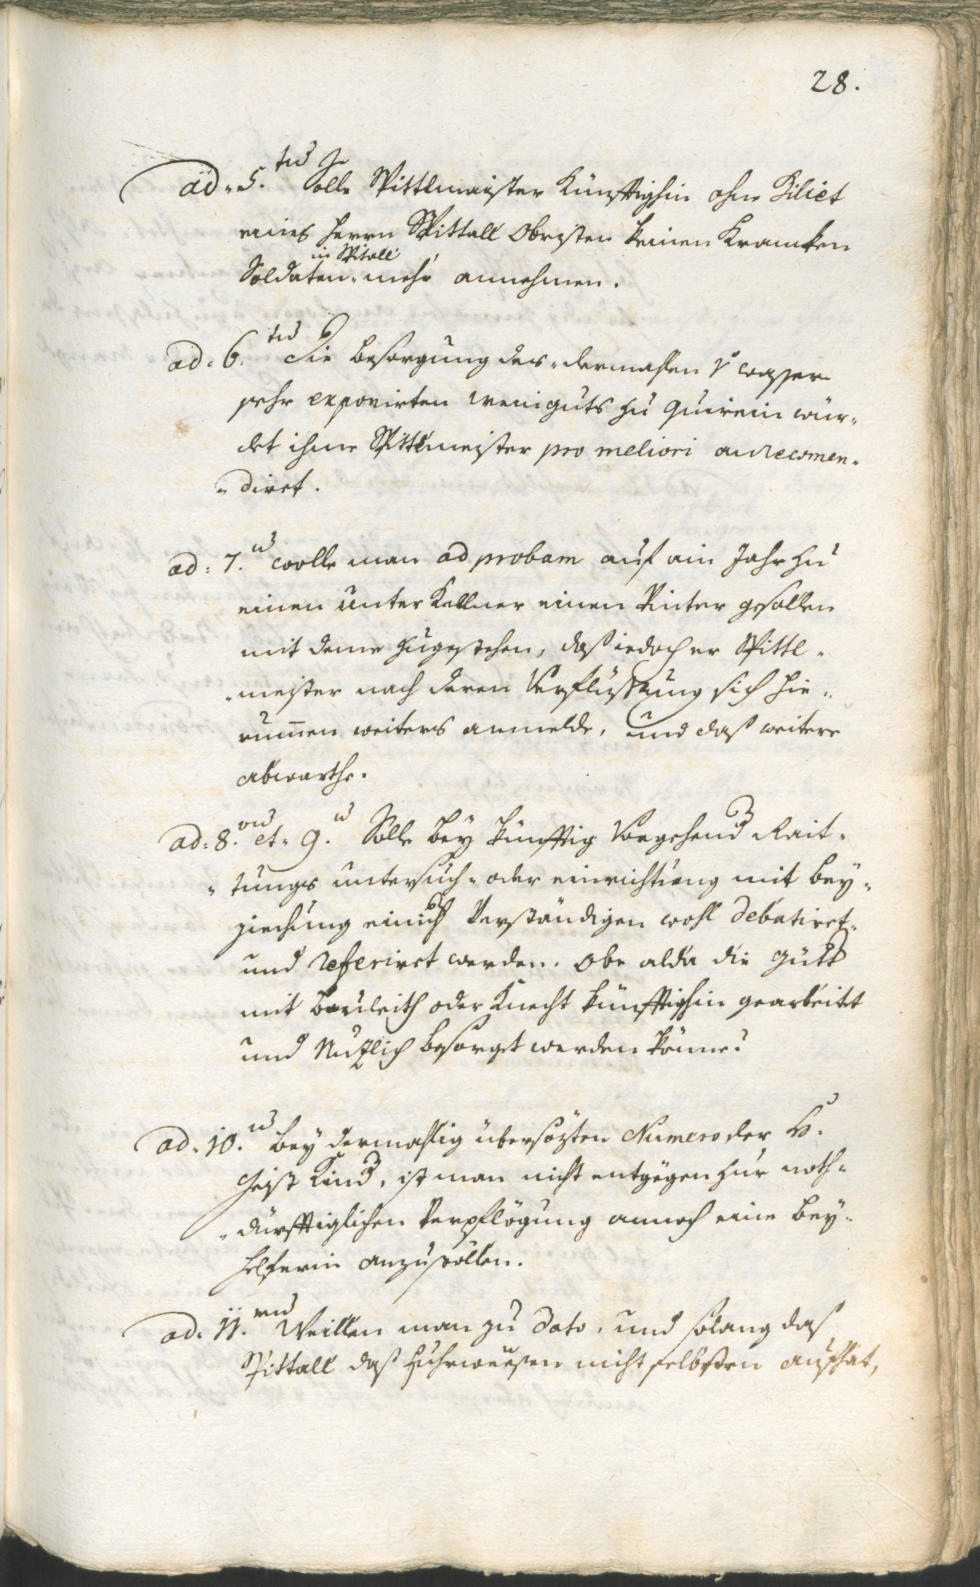 28.
ad. 5.tum Solle Spittlmaister Künfftighin ohne Biliet
eines Herrn Spittall Obristen keinen Krancken
in Spitall
Soldaten mehr annehmen.
ad. 6.tum Die besorgung des dermahlen wasser
sehr exponirten weinguts zu Quirein wür-
det ihme Spittlmeister pro meliori anrecomen-
diret.
ad. 7.um wolle man ad probam auf ain Jahr zu
einen unter Kellner einen Pinter gesellen
mit deme zugestehen, daß iedoch er Spittl-
meister nach deren Verflüssung sich hie-
rumen weiters anmelde, und daß weitere
abwarthe.
ad. 8.vum et. 9.um Solle bey künfftig Vorgehend Rait-
tungs untersuch- oder einrichtung mit bey-
ziechung einich Verständigen wohl debatiret
und referirct werden. Obe alda die Gütt
mit bauleith oder Knecht künfftighin gearbeitt
und Nuzlich besorget werden könne?
ad. 10.um bey dermahlig übersözten Numero der H.
Geist Kind, ist man nicht entgegen zur noth-
dürfftiglichen Verpflögung annoch eine bey-
helferin anzustöllen.
ad. 11.mum Weillen man zu dato, und solang daß
Spittall daß Fuhrweesen nicht selbsten aushat,